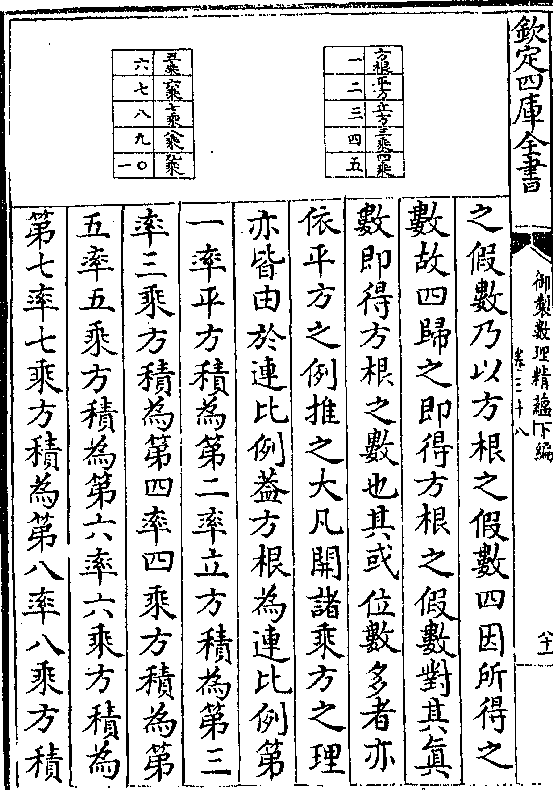 欽定四庫全書
御製數理精藴下編
卷三十八
方根平方立方三乘四乘
一二三四五
五乘六乘七乘八乘九乘
六七八九一〇
之假數乃以方根之假數四因所得之
數故四歸之即得方根之假數對其真
數即得方根之數也其或位數多者亦
依平方之例推之大凡開諸乘方之理
亦皆由於連比例葢方根為連比例第
一率平方積為第二率立方積為第三
率三乘方積為第四率四乘方積為第
五率五乘方積為第六率六乘方積為
第七率七乘方積為第八率八乘方積